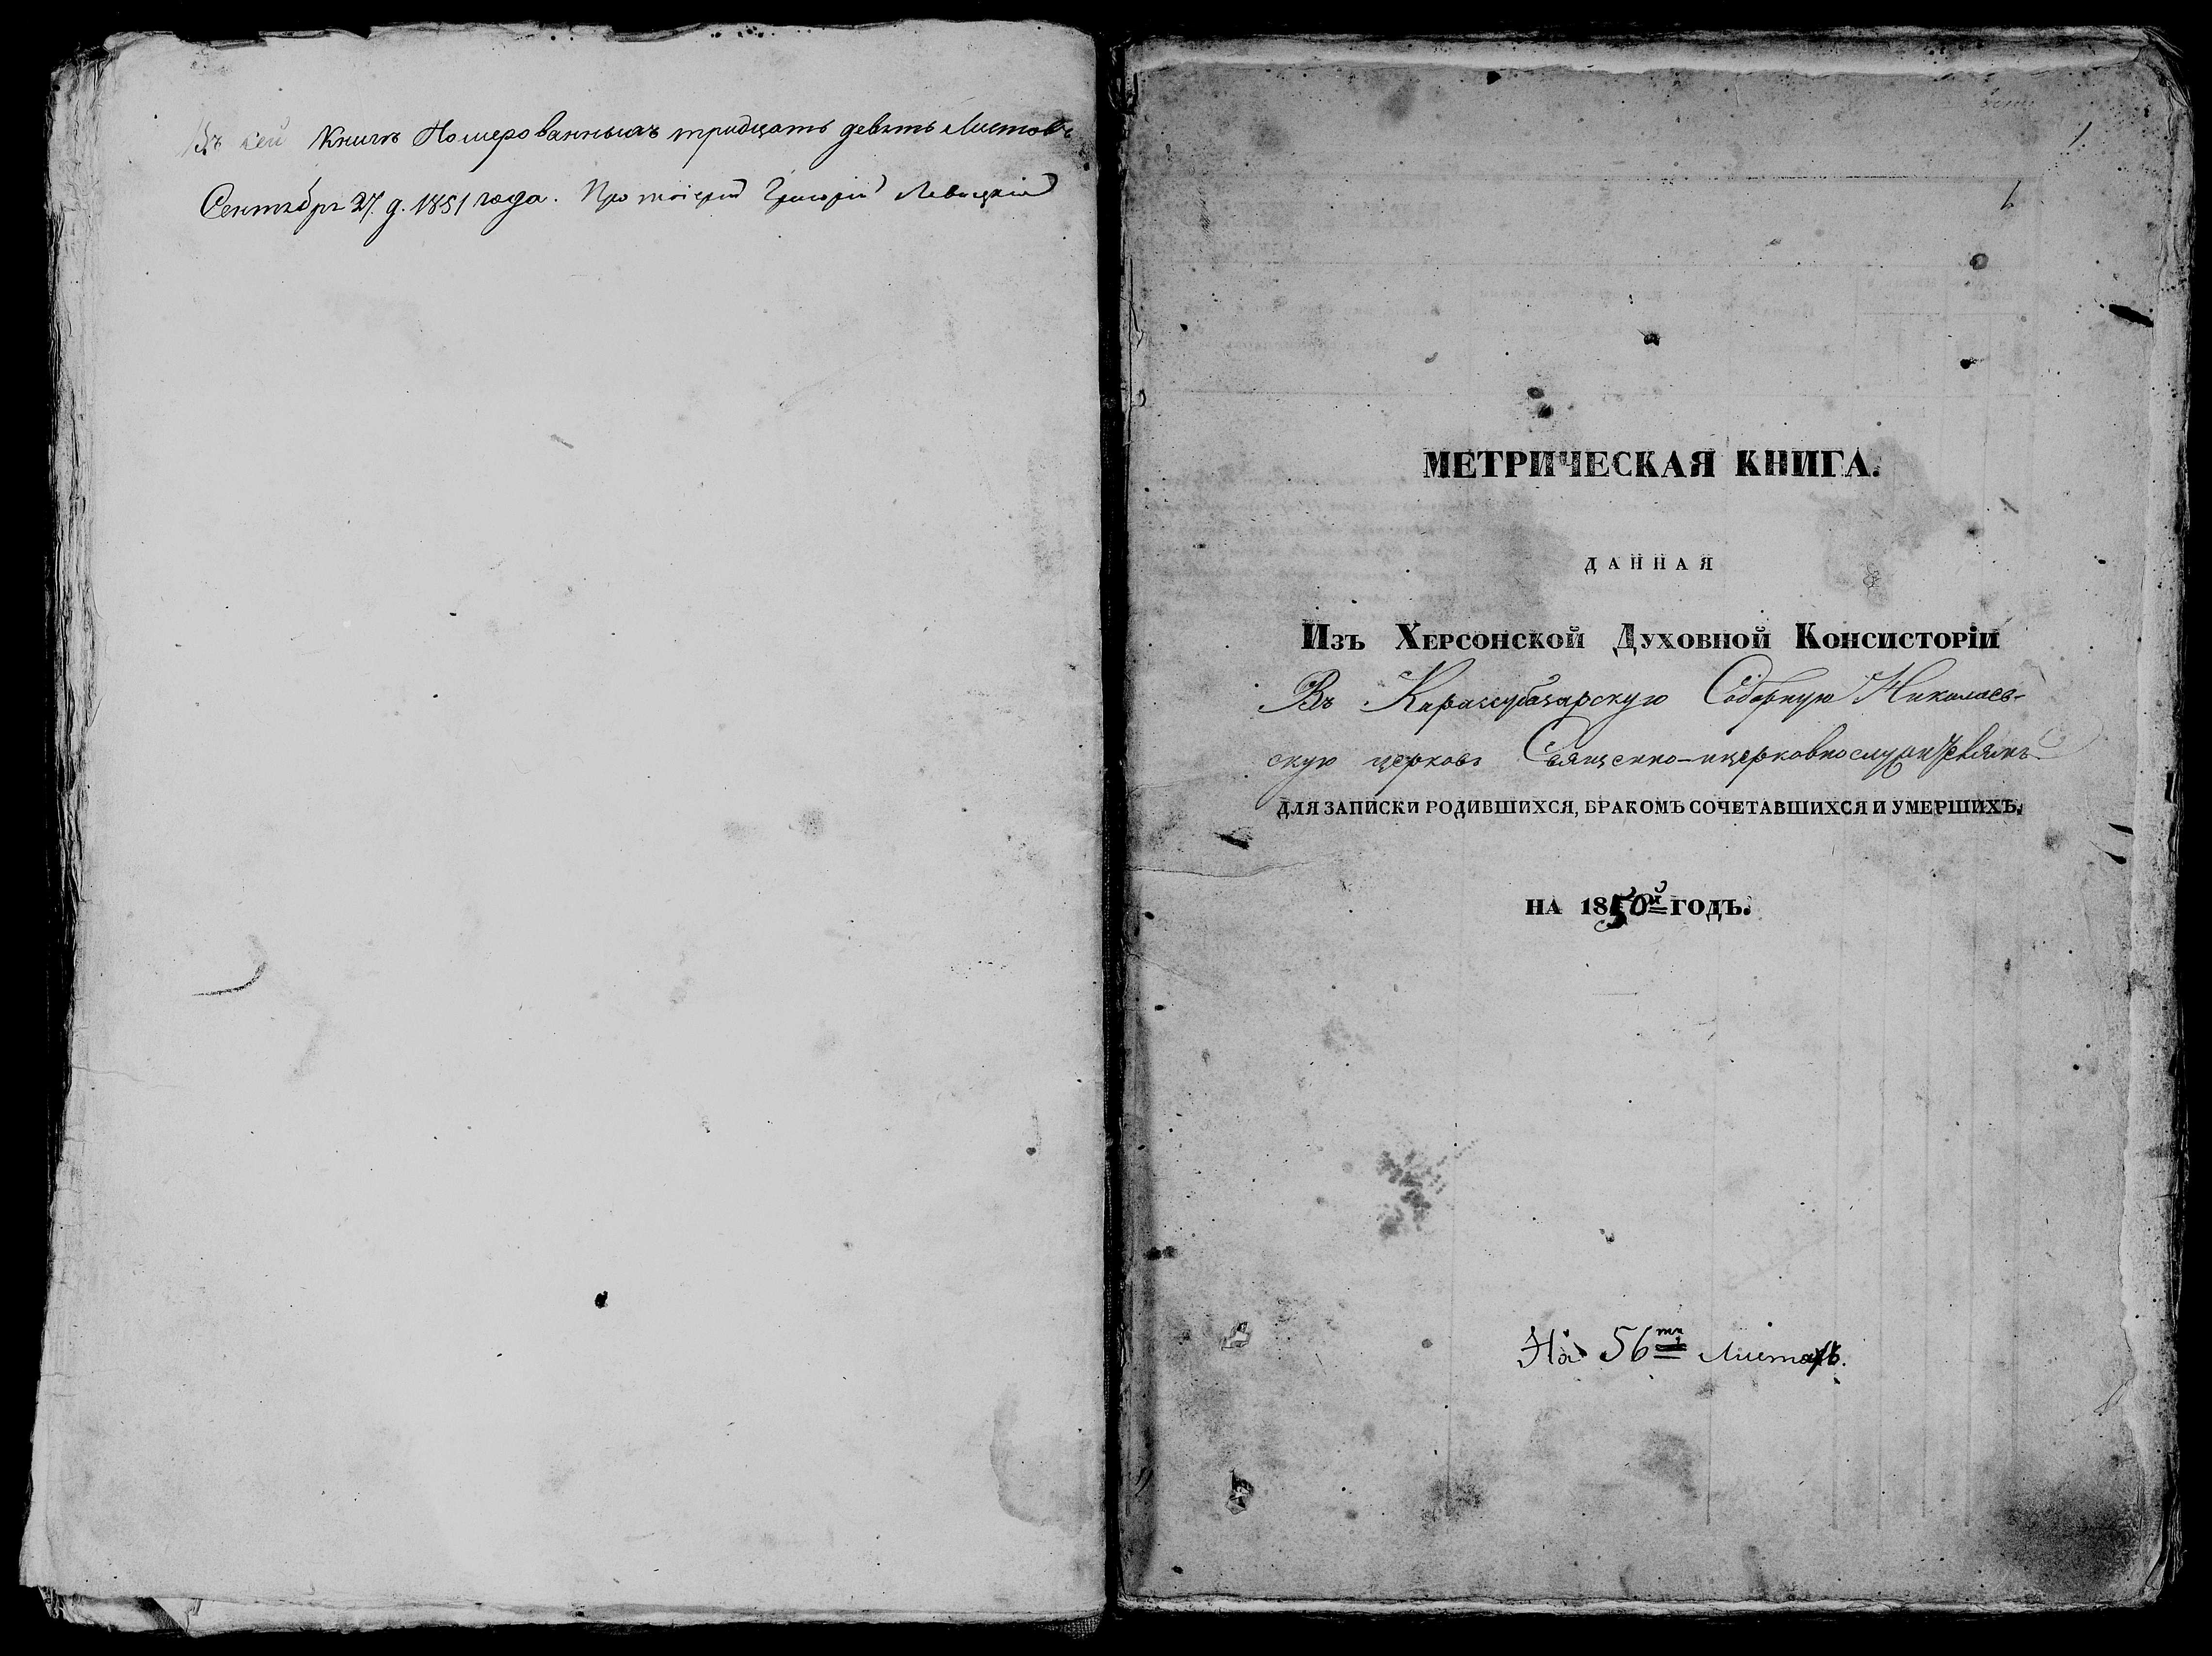 Въ сей Книгѣ Номерованныхъ тридцать девять Листовъ
Сентября 27. д. 1851 года. Протоіерей Григорій Левицкій
1.
1
МЕТРИЧЕСКАЯ КНИГА.
ДАННАЯ
Изъ Херсонской Духовной Консисторіи
Въ Карасубазарскую Соборную Николаев-
скую церковь Священно-церковнослужителямъ
ДЛЯ ЗАПИСКИ РОДИВШИХСЯ, БРАКОМЪ СОЧЕТАВШИХСЯ И УМЕРШИХЪ.
НА 1850й ГОДЪ.
На 56ти Листахъ.